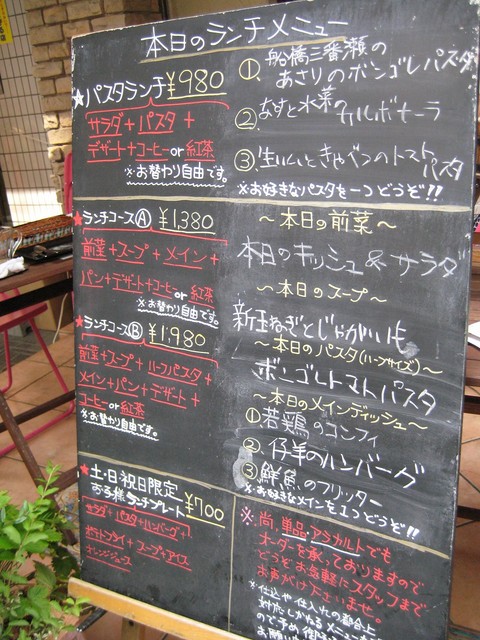 本日のランチメニュー
★パスタランチ ¥980
サラダ+パスタ+
デザート+コーヒーor紅茶
※お替わり自由です。
①船橋三番瀬の
あさりのボンゴレパスタ
②なすと水菜
カルボナーラ
③生ハムときゃべつのトマト
パスタ
※お好きなパスタを一つどうぞ!!
★ランチコースⒶ ¥1,380
前菜+スープ+メイン+
パン+デザート+コーヒーor紅茶
※お替わり自由です。
★ランチコースⒷ ¥1,980
前菜+スープ+ハーフパスタ+
メイン+パン+デザート+
コーヒーor紅茶
※お替わり自由です。
〜本日の前菜〜
本日のキッシュ&サラダ
〜本日のスープ〜
新玉ねぎとじゃがいも
〜本日のパスタ(ハーフサイズ)〜
ボンゴレトマトパスタ
〜本日のメインディッシュ〜
①若鶏のコンフィ
②仔羊のハンバーグ
③鮮魚のフリッター
※お好きなメインを1つどうぞ!!
★土・日・祝日限定
お子様ランチプレート ¥700
サラダ+パスタ+ハンバーグ+
ポテトフライ+スープ+アイス
オレンジジュース
※尚、単品・アラカルトでも
オーダーを承っておりますので
どうぞお気軽にスタッフまで
お声がけ下さいませ。
※仕込や仕入れの都合上